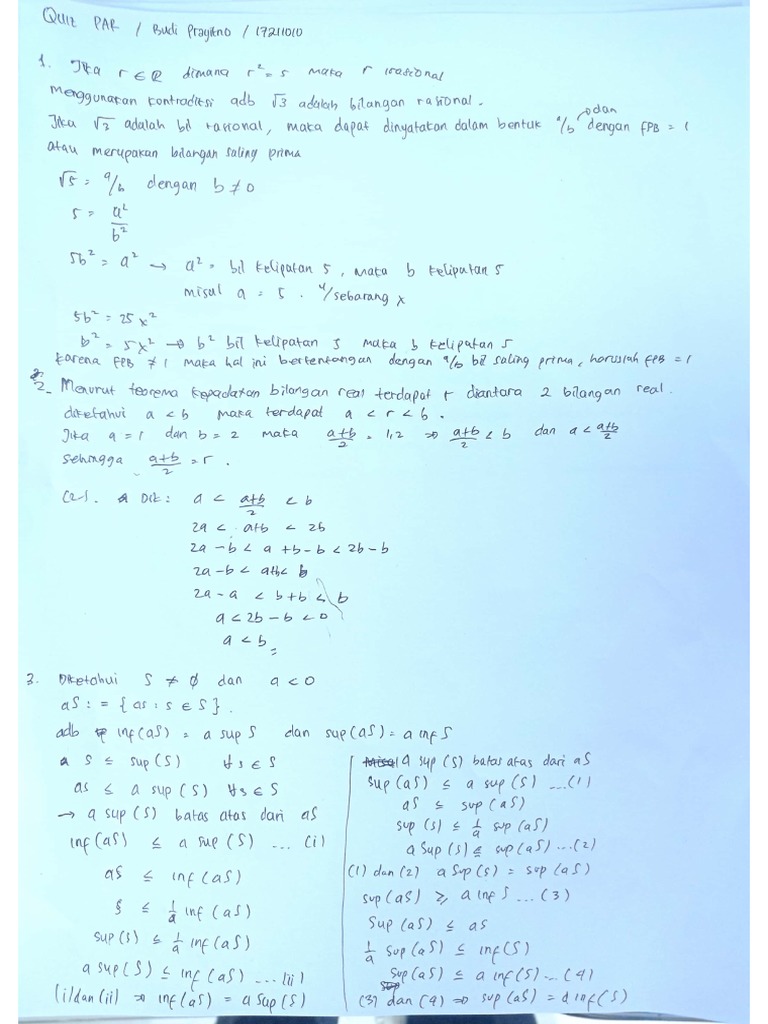 Quiz PAR / Budi Prayitno / 17211010
1. Jika r ∈ ℝ dimana r² = 5 maka r irasional
menggunakan kontradiksi adb √3 adalah bilangan rasional.
Jika √2 adalah bil rasional, maka dapat dinyatakan dalam bentuk a/b dengan FPB = 1
dan
atau merupakan bilangan saling prima
√5 = a/b dengan b ≠ 0
5 = a²/b²
5b² = a² → a² = bil kelipatan 5, maka b kelipatan 5
misul a = 5 . /sebarang x
5b² = 25x²
b² = 5x² → b² bil kelipatan 5 maka b kelipatan 5
karena FPB ≠ 1 maka hal ini bertentangan dengan a/b bil saling prima, haruslah FPB = 1
2. Menurut teorema kepadatan bilangan real terdapat r diantara 2 bilangan real.
diketahui a < b maka terdapat a < r < b.
Jika a = 1 dan b = 2 maka (a+b)/2 = 1,2 ⇒ (a+b)/2 < b dan a < (a+b)/2
sehingga (a+b)/2 = r.
Dik: a < (a+b)/2 < b
2a < a+b < 2b
2a - b < a + b - b < 2b - b
2a - b < a+b < b
2a - a < b + b < b
a < 2b - b < 0
a < b
3. Diketahui S ≠ ∅ dan a < 0
aS := {as : s ∈ S}.
adb inf(aS) = a sup S dan sup(aS) = a inf S
s ≤ sup(S) ∀s ∈ S
as ≤ a sup(S) ∀s ∈ S
→ a sup(S) batas atas dari aS
inf(aS) ≤ a sup(S) ... (i)
aS ≤ inf(aS)
S ≤ 1/a inf(aS)
sup(S) ≤ 1/a inf(aS)
a sup(S) ≤ inf(aS) ... (ii)
(i) dan (ii) ⇒ inf(aS) = a sup(S)
a sup(S) batas atas dari aS
sup(aS) ≤ a sup(S) ...(1)
aS ≤ sup(aS)
sup(S) ≤ 1/a sup(aS)
a sup(S) ≤ sup(aS) ...(2)
(1) dan (2) a sup(S) = sup(aS)
sup(aS) ≥ a inf S ...(3)
sup(aS) ≤ aS
1/a sup(aS) ≤ inf(S)
sup(aS) ≤ a inf(S) ...(4)
(3) dan (4) ⇒ sup(aS) = a inf(S)